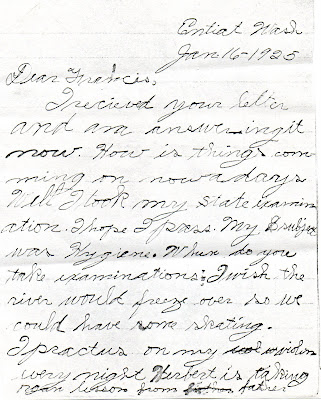 Entiat Wash
Jan 16-1925
Dear Frances,
I recieved your letter
and am answering it
now. How is things com
ming on now a days
Well I took my state examin
ation. I hope I pass. My Subject
was Hygiene. When do you
take examinations; I wish the
river would freeze over so we
could have some skating.
I practus on my violin
every night Herbert is taking
lesson from father